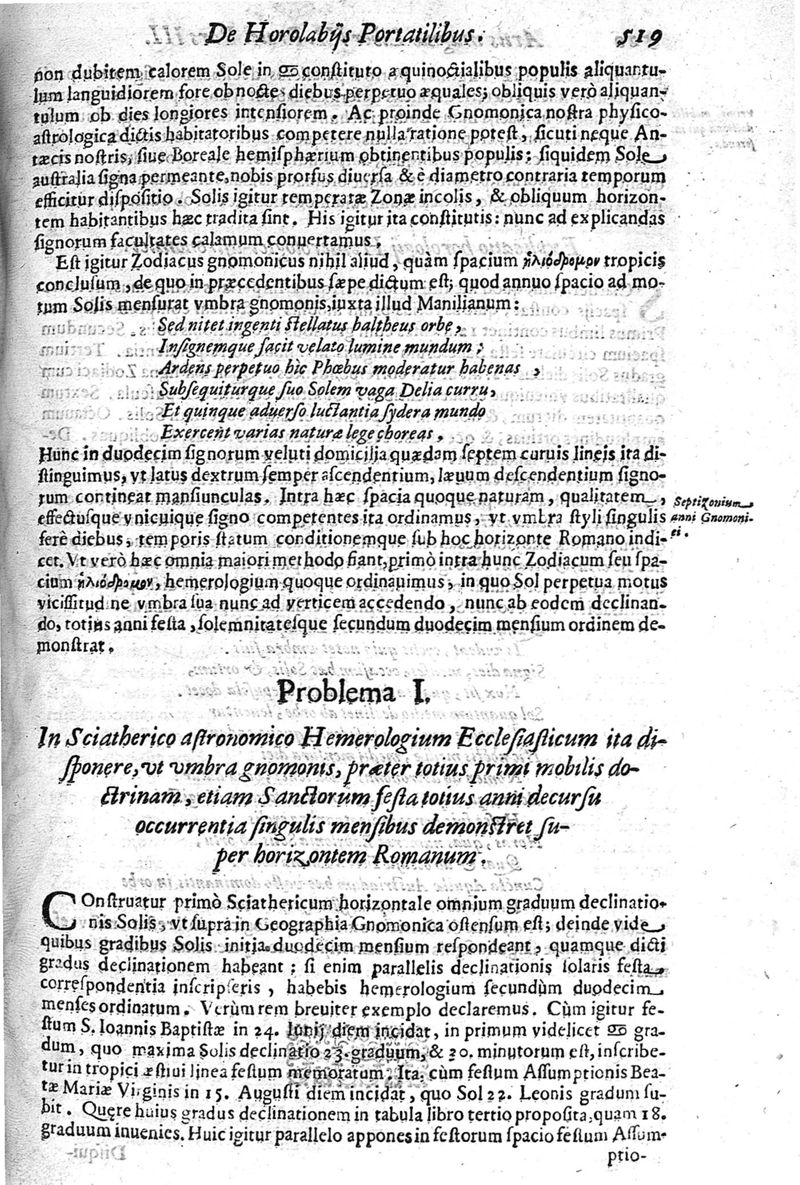 De Horolabijs Portatilibus. 519
non dubitem calorem Sole in ♋ constituto æquinoctialibus populis aliquantu-
lum languidiorem fore ob noctes diebus perpetuo æquales; obliquis verò aliquan-
tulum ob dies longiores intensiorem. Ac proinde Gnomonica nostra physico-
astrologica dictis habitatoribus competere nulla ratione potest, sicuti neque An-
tæcis nostris, siue Boreale hemisphærium obtinentibus populis: siquidem Sole
australia signa permeante, nobis prorsus diuersa & è diametro contraria temporum
efficitur dispositio. Solis igitur temperatæ Zonæ incolis, & obliquum horizon-
tem habitantibus hæc tradita sint. His igitur ita constitutis: nunc ad explicandas
signorum facultates calamum conuertamus.
Est igitur Zodiacus gnomonicus nihil aliud, quàm spacium ἡλιόδρομον tropicis
conclusum, de quo in præcedentibus sæpe dictum est; quod annuo spacio ad mo-
tum Solis mensurat vmbra gnomonis, iuxta illud Manilianum:
Sed nitet ingenti stellatus baltheus orbe,
Insignemque facit velato lumine mundum;
Ardens perpetuo hic Phœbus moderatur habenas,
Subsequiturque suo Solem vaga Delia curru,
Et quinque aduerso luctantia sydera mundo
Exercent varias naturæ lege choreas.
Hunc in duodecim signorum veluti domicilia quædam septem curuis lineis ita di-
stinguimus, vt latus dextrum semper ascendentium, læuum descendentium signo-
rum contineat mansiunculas. Intra hæc spacia quoque naturam, qualitatem,
effectusque vnicuique signo competentes ita ordinamus, vt vmbra styli singulis
ferè diebus, temporis statum conditionemque sub hoc horizonte Romano indi-
cet. Vt verò hæc omnia maiori methodo fiant, primò intra hunc Zodiacum seu spa-
cium ἡλιόδρομον, hemerologium quoque ordinauimus, in quo Sol perpetua motus
vicissitudine vmbra sua nunc ad verticem accedendo, nunc ab eodem declinan-
do, totius anni festa, solemnitatesque secundum duodecim mensium ordinem de-
monstrat.
Septizonium
anni Gnomoni-
ci.
Problema I.
In Sciatherico astronomico Hemerologium Ecclesiasticum ita di-
sponere, vt vmbra gnomonis, præter totius primi mobilis do-
ctrinam, etiam Sanctorum festa totius anni decursu
occurrentia singulis mensibus demonstret su-
per horizontem Romanum.
COnstruatur primò Sciathericum horizontale omnium graduum declinatio-
nis Solis, vt supra in Geographia Gnomonica ostensum est; deinde vide
quibus gradibus Solis initia duodecim mensium respondeant, quamque dicti
gradus declinationem habeant; si enim parallelis declinationis solaris festa
correspondentia inscripseris, habebis hemerologium secundùm duodecim
menses ordinatum. Verùm rem breuiter exemplo declaremus. Cùm igitur fe-
stum S. Ioannis Baptistæ in 24. Iunij diem incidat, in primum videlicet ♋ gra-
dum, quo maxima Solis declinatio 23. graduum, & 30. minutorum est, inscribe-
tur in tropici æstiui linea festum memoratum. Ita cùm festum Assumptionis Bea-
tæ Mariæ Virginis in 15. Augusti diem incidat, quo Sol 22. Leonis gradum su-
bit. Quęre huius gradus declinationem in tabula libro tertio proposita, quam 18.
graduum inuenies. Huic igitur parallelo appones in festorum spacio festum Assum-
ptio-